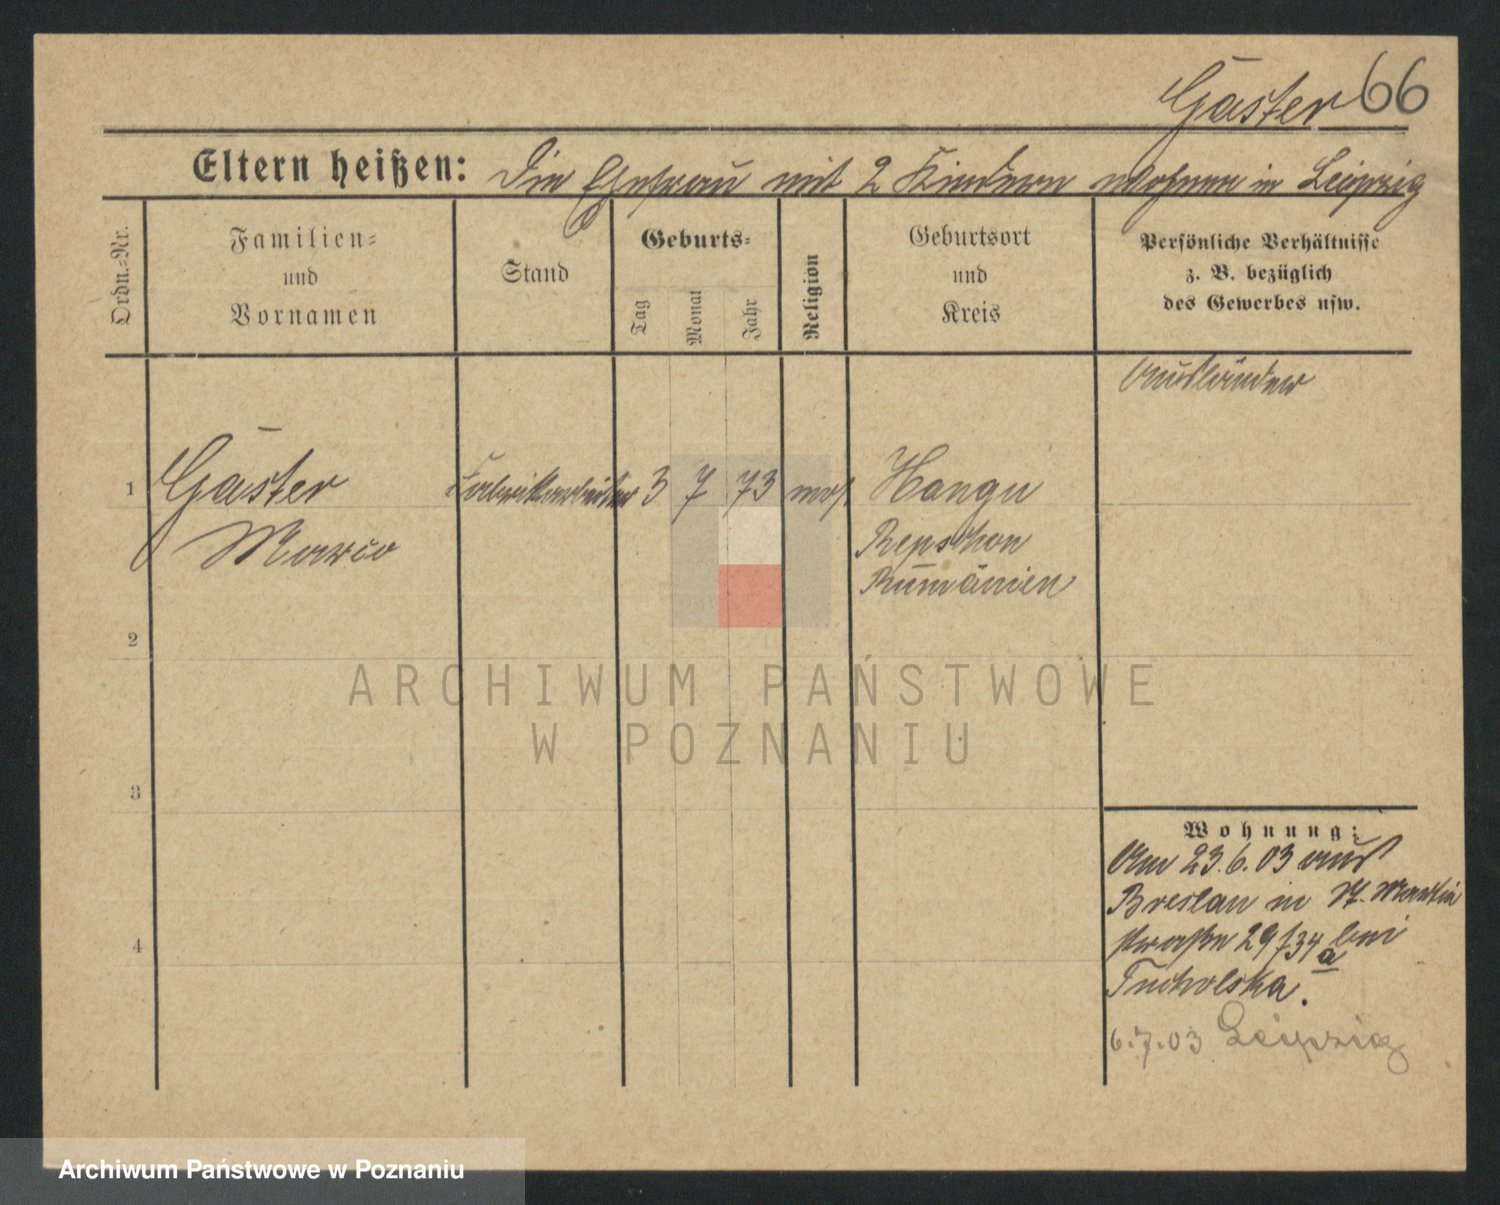 Gäster 66
Eltern heißen: Die Ehefrau mit 2 Kindern wohnen in Leipzig
Ordn.=Nr.
Familien=
und
Vornamen
Stand
Geburts=
Tag
Monat
Jahr
Religion
Geburtsort
und
Kreis
Persönliche Verhältnisse
z. B. bezüglich
des Gewerbes usw.
Ausländer
1 Gäster Fabrikarbeiter 3 7 73 mos. Hangu
Marco Repschon
Rumänien
2
ARCHIWUM PAŃSTWOWE
W POZNANIU
3
Wohnung:
Am 23.6.03 aus
Breslau in St. Martin
straße 29/34 bei
a
Tucholska.
4
6.7.03 Leipzig
Archiwum Państwowe w Poznaniu